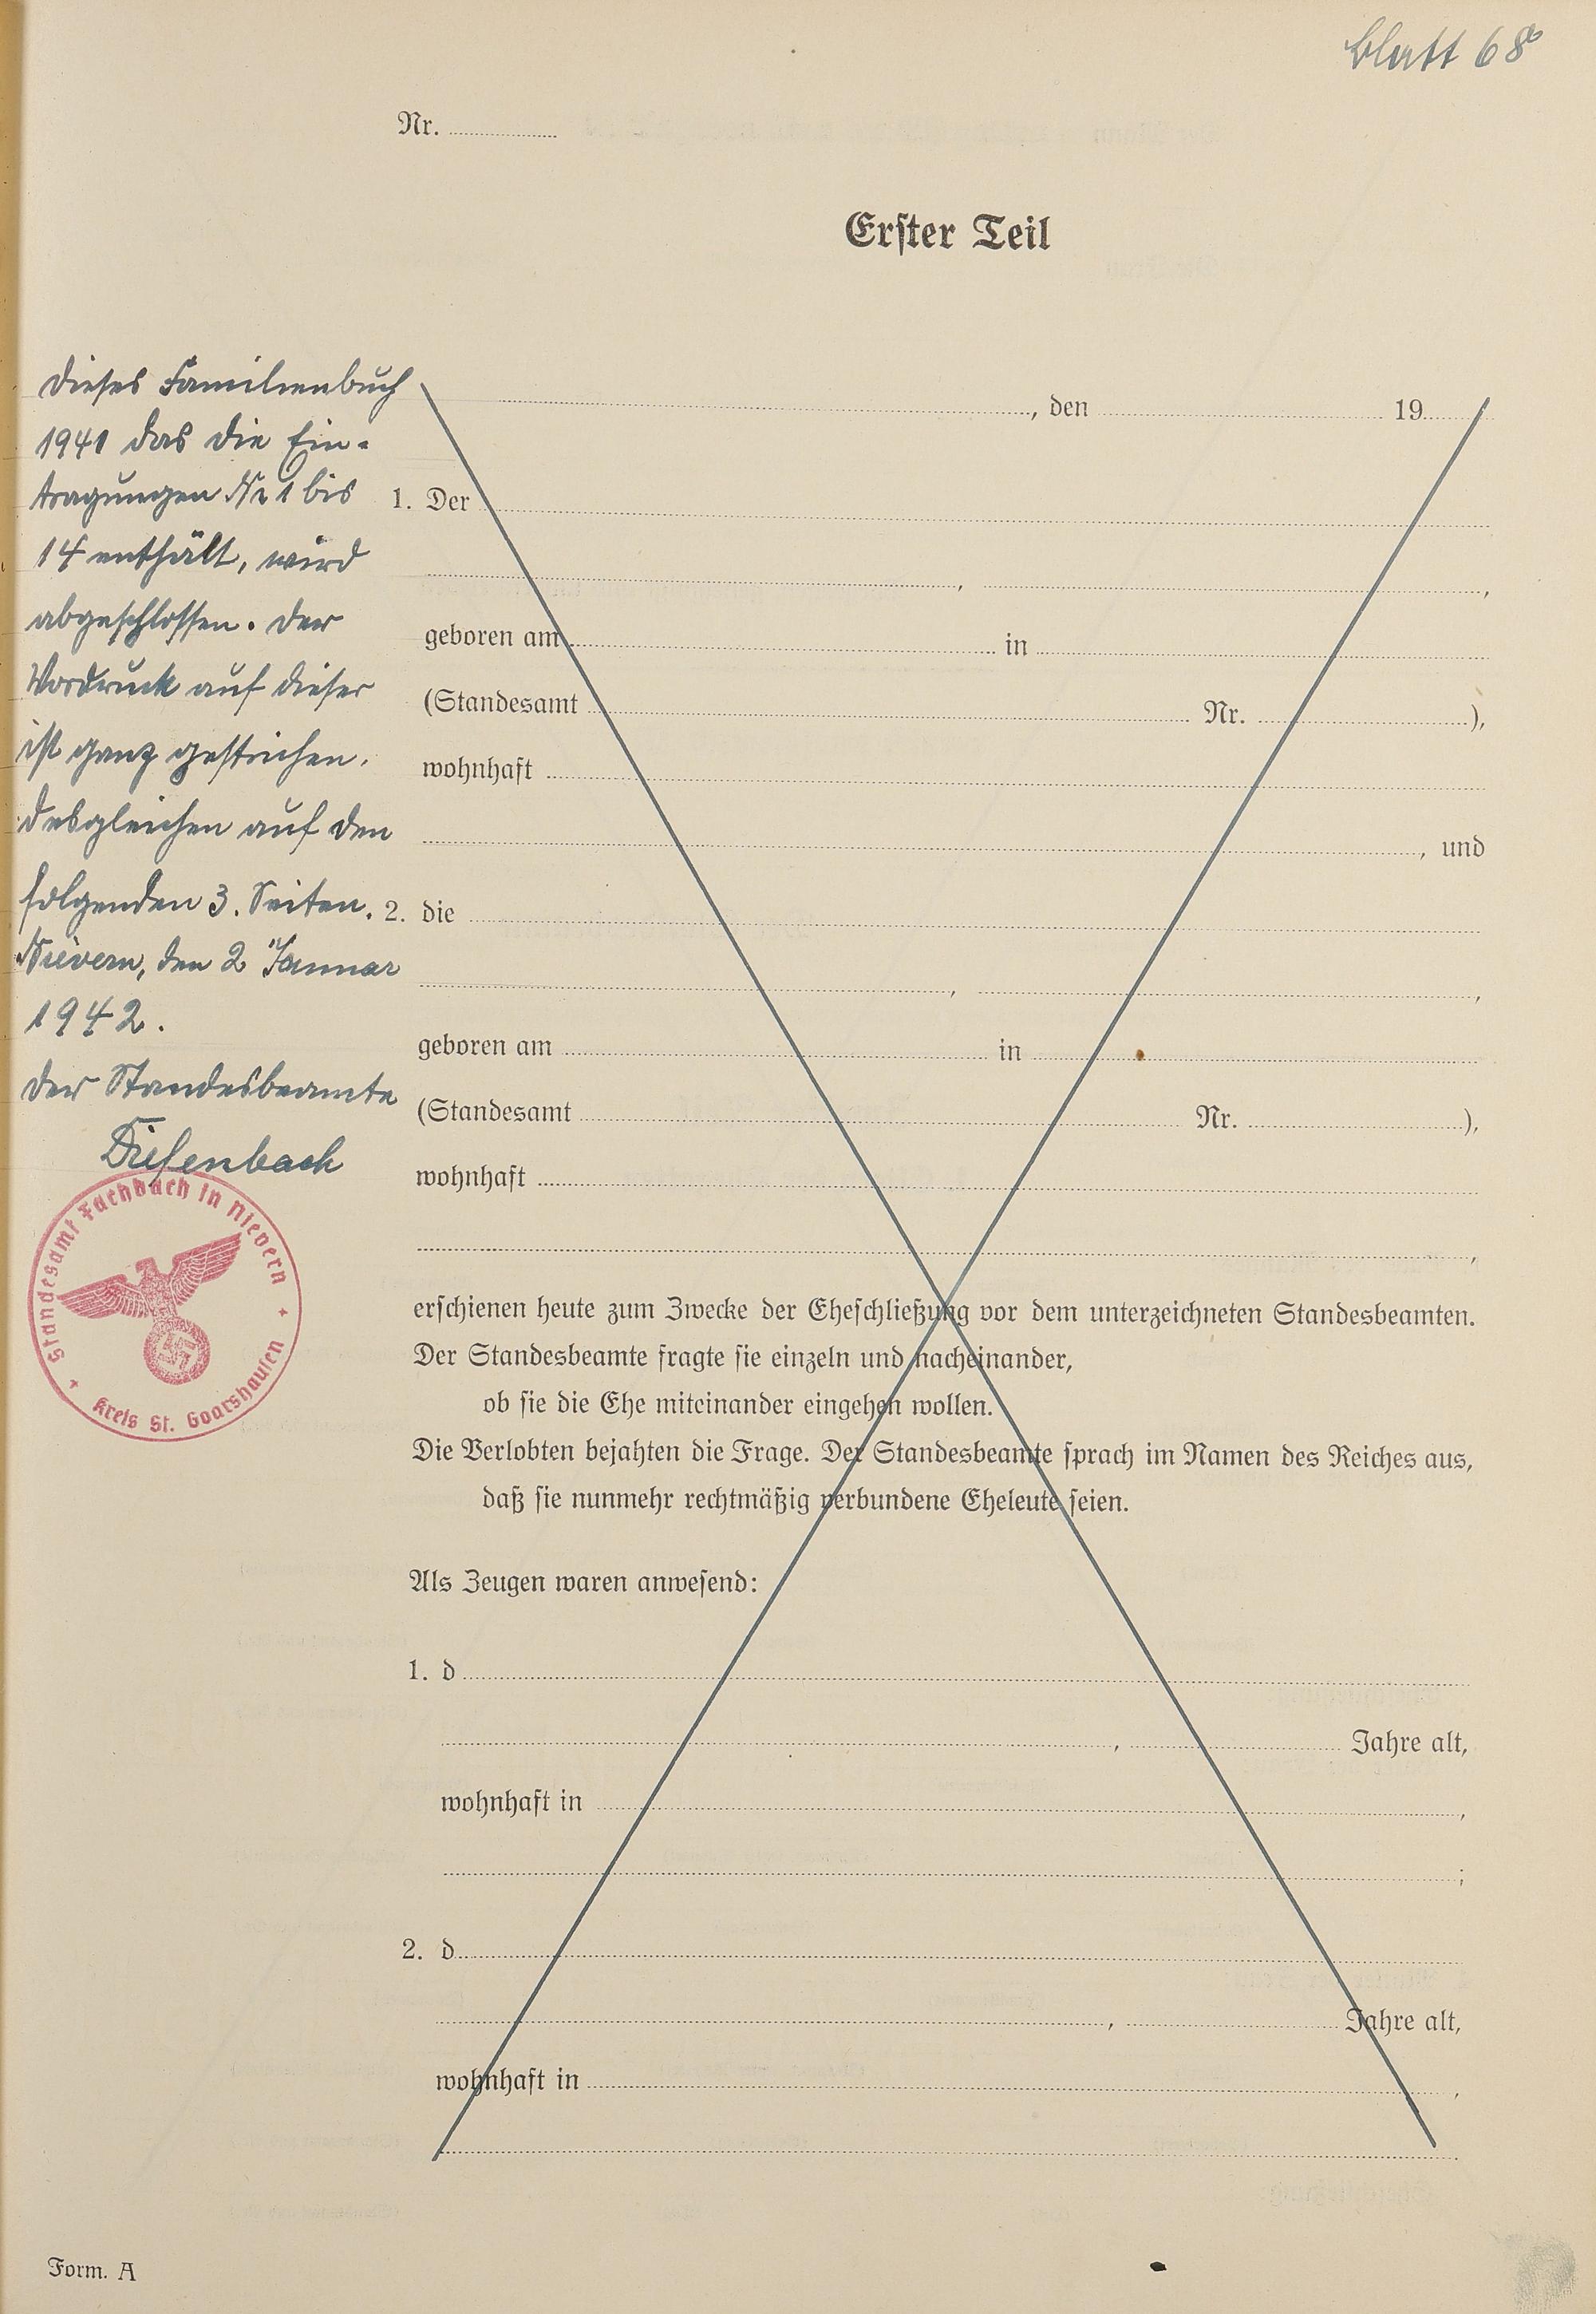 Blatt 68
Nr.
Erster Teil
Dieses Familienbuch
1941 das die Ein-
tragungen Nr 1 bis
14 enthält, wird
abgeschlossen. Der
Vordruck auf dieser
ist ganz gestrichen.
desgleichen auf den
folgenden 3. Seiten.
Nievern, den 2 Januar
1942.
Der Standesbeamte
Diefenbach
Standesamt Fachbach in Nievern
Kreis St. Goarshausen
, den 19
1. Der
, ,
geboren am in
(Standesamt Nr. ),
wohnhaft
, und
2. die
, ,
geboren am in
(Standesamt Nr. ),
wohnhaft
,
erschienen heute zum Zwecke der Eheschließung vor dem unterzeichneten Standesbeamten.
Der Standesbeamte fragte sie einzeln und nacheinander,
ob sie die Ehe miteinander eingehen wollen.
Die Verlobten bejahten die Frage. Der Standesbeamte sprach im Namen des Reiches aus,
daß sie nunmehr rechtmäßig verbundene Eheleute seien.
Als Zeugen waren anwesend:
1. d
, Jahre alt,
wohnhaft in ,
;
2. d
, Jahre alt,
wohnhaft in ,
.
Form. A